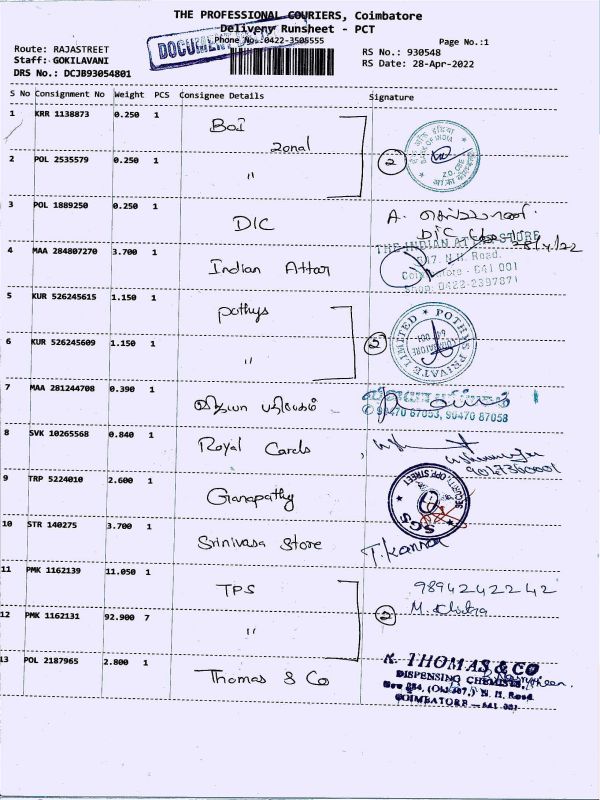 THE PROFESSIONAL COURIERS, Coimbatore
Delivery Runsheet - PCT
Phone No.:0422-3505555
Page No.:1
Route: RAJASTREET
RS No.: 930548
Staff: GOKILAVANI
RS Date: 28-Apr-2022
DRS No.: DCJB93054801
DOCUMENT
S No Consignment No Weight PCS Consignee Details Signature
1 KRR 1138873 0.250 1 BOI Zonal
BANK OF INDIA
2 POL 2535579 0.250 1 "
2
3 POL 1889250 0.250 1 DIC A.
DIC
4 MAA 284807270 3.700 1 Indian Attar
THE INDIAN ATTAR STORE
N.H. Road.
Coimbatore - 641 001
5 KUR 526245615 1.150 1 Pothys
POTHYS PRIVATE LIMITED
COIMBATORE
6 KUR 526245609 1.150 1 "
2
7 MAA 281244708 0.390 1 வித்யா பதிப்பகம்
90470 87053, 90470 87058
8 SVK 10265568 0.840 1 Royal Cards
9 TRP 5224010 2.600 1 Ganapathy
SGS
10 STR 140275 3.700 1 Srinivasa Store T. Kannan
11 PMK 1162139 11.050 1 TPS 9894242242
12 PMK 1162131 92.900 7 "
2
13 POL 2187965 2.800 1 Thomas & Co
K. THOMAS & CO
DISPENSING CHEMISTS,
N. H. Road.
COIMBATORE - 641 001